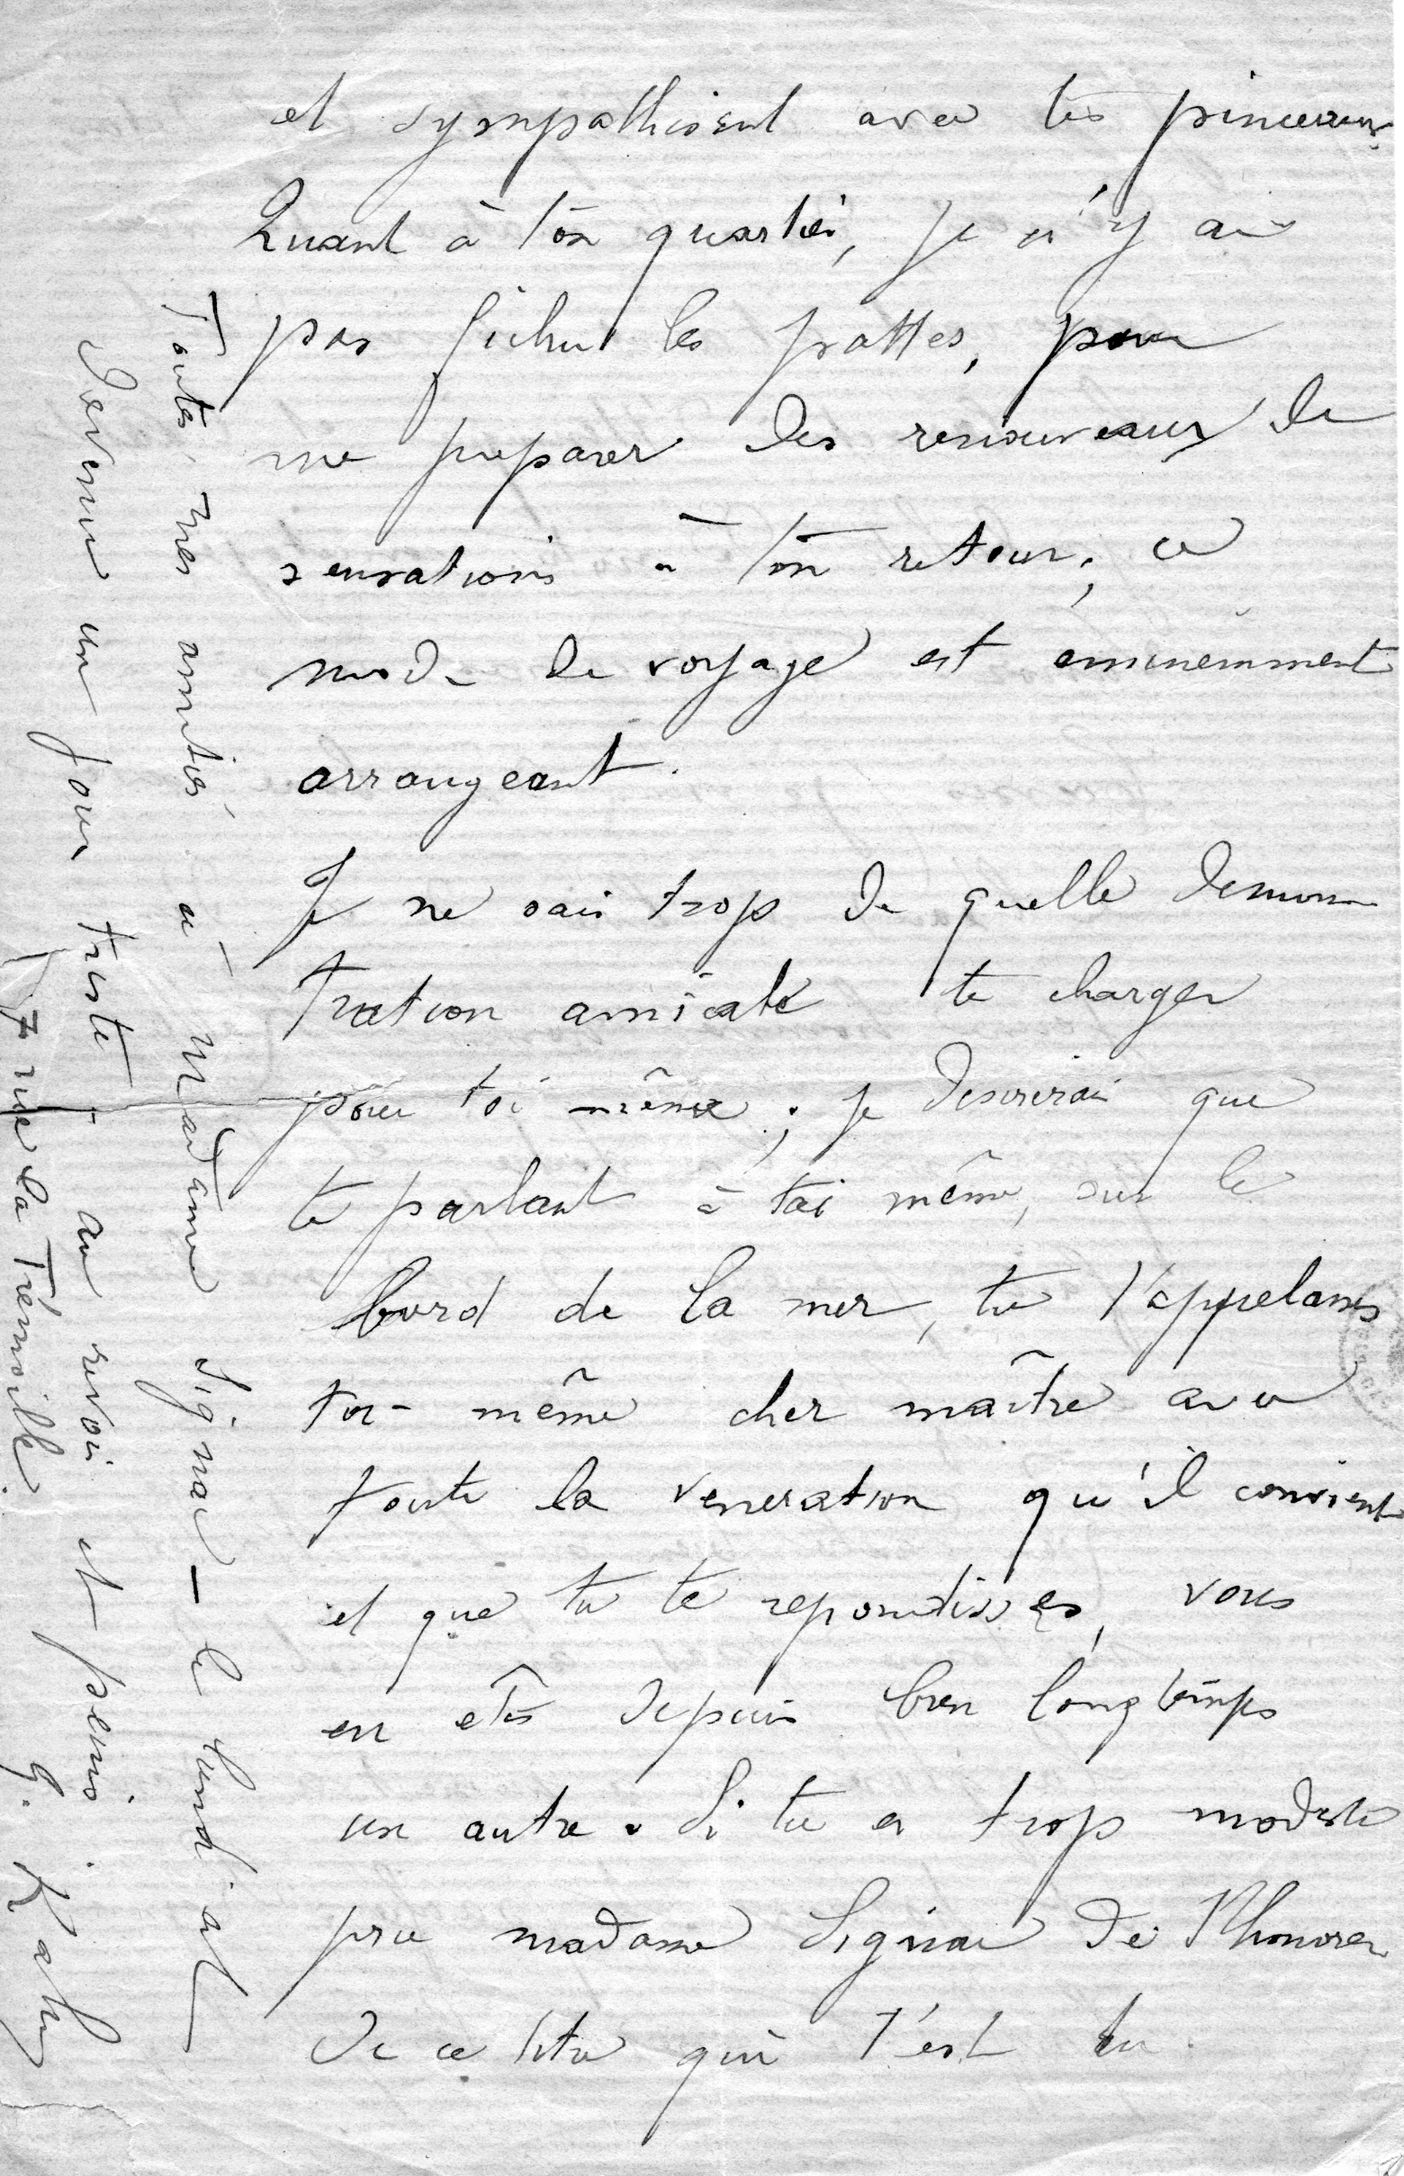 et sympathisent avec tes pinceaux.
Quant à ton quartier, je n'y ai
pas fichu les pattes, pour
me preparer des renouveaux de
sensations à ton retour; ce
mode de voyage est eminemment
arrangeant.
Je ne sais trop de quelle demons
tration amicale te charger
pour toi même; je desirerai que
te parlant à toi même, sur le
bord de la mer, tu t'appelasses
toi-même cher maître avec
toute la veneration qu'il convient
et que tu te repondisses, vous
en etes depuis bien longtemps
un autre. Si tu es trop modeste
prie madame Signac de t'honorer
de ce titre qui t'est du.
Toutes mes amitiés à Madame Signac – le lundi est
devenu un jour triste – au revoir et pensio.
7 rue la Trémoille. G. Kahn